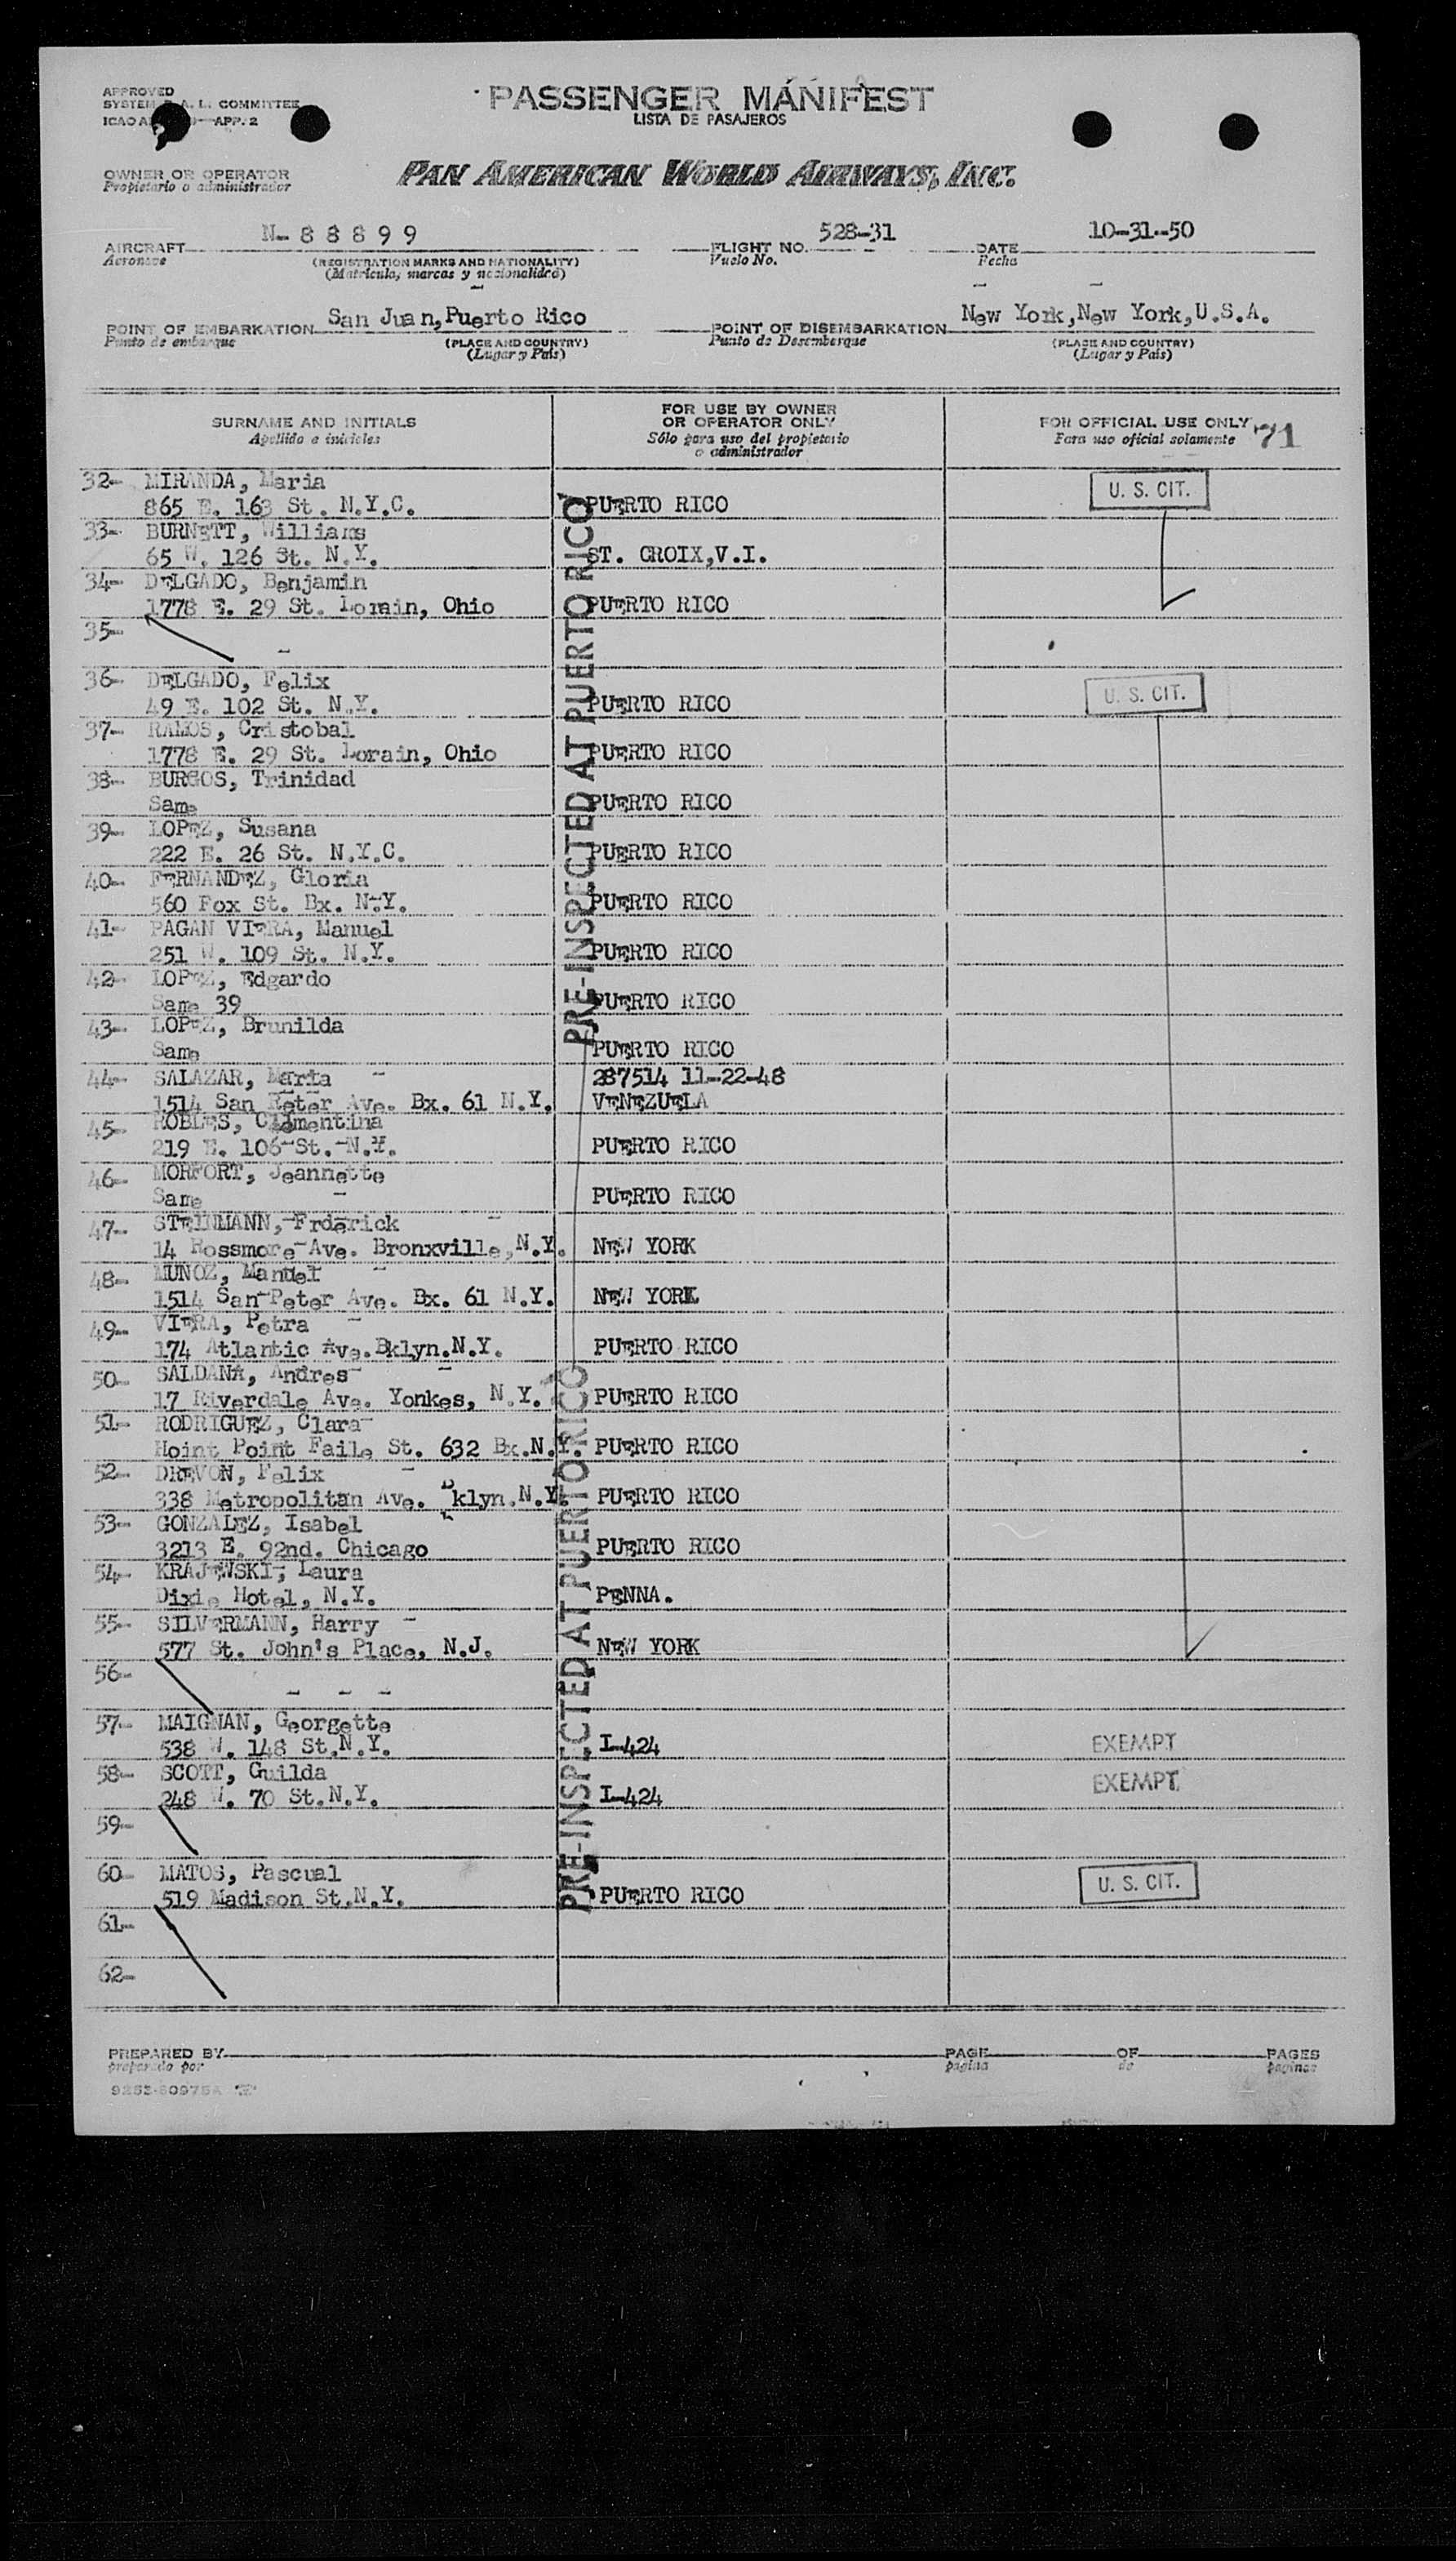 APPROVED
SYSTEM A. L. COMMITTEE
ICAO APP. 2
PASSENGER MANIFEST
LISTA DE PASAJEROS
OWNER OR OPERATOR
Propietario o administrador
PAN AMERICAN WORLD AIRWAYS, INC.
AIRCRAFT N-88899 FLIGHT NO. 528-31 DATE 10-31-50
Aeronave (REGISTRATION MARKS AND NATIONALITY) Vuelo No. Fecha
(Matricula, marcas y nacionalidad)
POINT OF EMBARKATION San Juan,Puerto Rico POINT OF DISEMBARKATION New York,New York,U.S.A.
Punto de embarque (PLACE AND COUNTRY) Punto de Desembarque (PLACE AND COUNTRY)
(Lugar y País) (Lugar y País)
SURNAME AND INITIALS FOR USE BY OWNER OR OPERATOR ONLY FOR OFFICIAL USE ONLY 71
Apellido e iniciales Sólo para uso del propietario o administrador Para uso oficial solamente
PRE-INSPECTED AT PUERTO RICO
32- MIRANDA, Maria U. S. CIT.
865 E. 163 St. N.Y.C. PUERTO RICO
33- BURNETT, Williams
65 W. 126 St. N.Y. ST. CROIX,V.I.
34- DELGADO, Benjamin
1778 E. 29 St. Lorain, Ohio PUERTO RICO
35-
36- DELGADO, Felix U. S. CIT.
49 E. 102 St. N.Y. PUERTO RICO
37- RAMOS, Cristobal
1778 E. 29 St. Lorain, Ohio PUERTO RICO
38- BURGOS, Trinidad
Same PUERTO RICO
39- LOPEZ, Susana
222 E. 26 St. N.Y.C. PUERTO RICO
40- FERNANDEZ, Gloria
560 Fox St. Bx. N.Y. PUERTO RICO
41- PAGAN VIERA, Manuel
251 W. 109 St. N.Y. PUERTO RICO
42- LOPEZ, Edgardo
Same 39 PUERTO RICO
43- LOPEZ, Brunilda
Same PUERTO RICO
44- SALAZAR, Marta 287514 11-22-48
1514 San Peter Ave. Bx. 61 N.Y. VENEZUELA
45- ROBLES, Clementina
219 E. 106 St. N.Y. PUERTO RICO
46- MORFORT, Jeannette
Same PUERTO RICO
47- STEINMANN, Frderick
14 Rossmore Ave. Bronxville, N.Y. NEW YORK
48- MUNOZ, Manuel
1514 San Peter Ave. Bx. 61 N.Y. NEW YORK
49- VIERA, Petra
174 Atlantic Ave.Bklyn.N.Y. PUERTO RICO
50- SALDANA, Andres
17 Riverdale Ave. Yonkes, N.Y. PUERTO RICO
51- RODRIGUEZ, Clara
Hoint Point Faile St. 632 Bx.N.Y. PUERTO RICO
52- DREVON, Felix
338 Metropolitan Ave. Bklyn.N.Y. PUERTO RICO
53- GONZALEZ, Isabel
3213 E. 92nd. Chicago PUERTO RICO
54- KRAJEWSKI, Laura
Dixie Hotel, N.Y. PENNA.
55- SILVERMANN, Harry
577 St. John's Place, N.J. NEW YORK
56-
PRE-INSPECTED AT PUERTO RICO
57- MAIGNAN, Georgette
538 W. 148 St.N.Y. I-424 EXEMPT
58- SCOTT, Guilda
248 W. 70 St.N.Y. I-424 EXEMPT
59-
60- MATOS, Pascual U. S. CIT.
519 Madison St.N.Y. PUERTO RICO
61-
62-
PREPARED BY PAGE OF PAGES
preparado por página de páginas